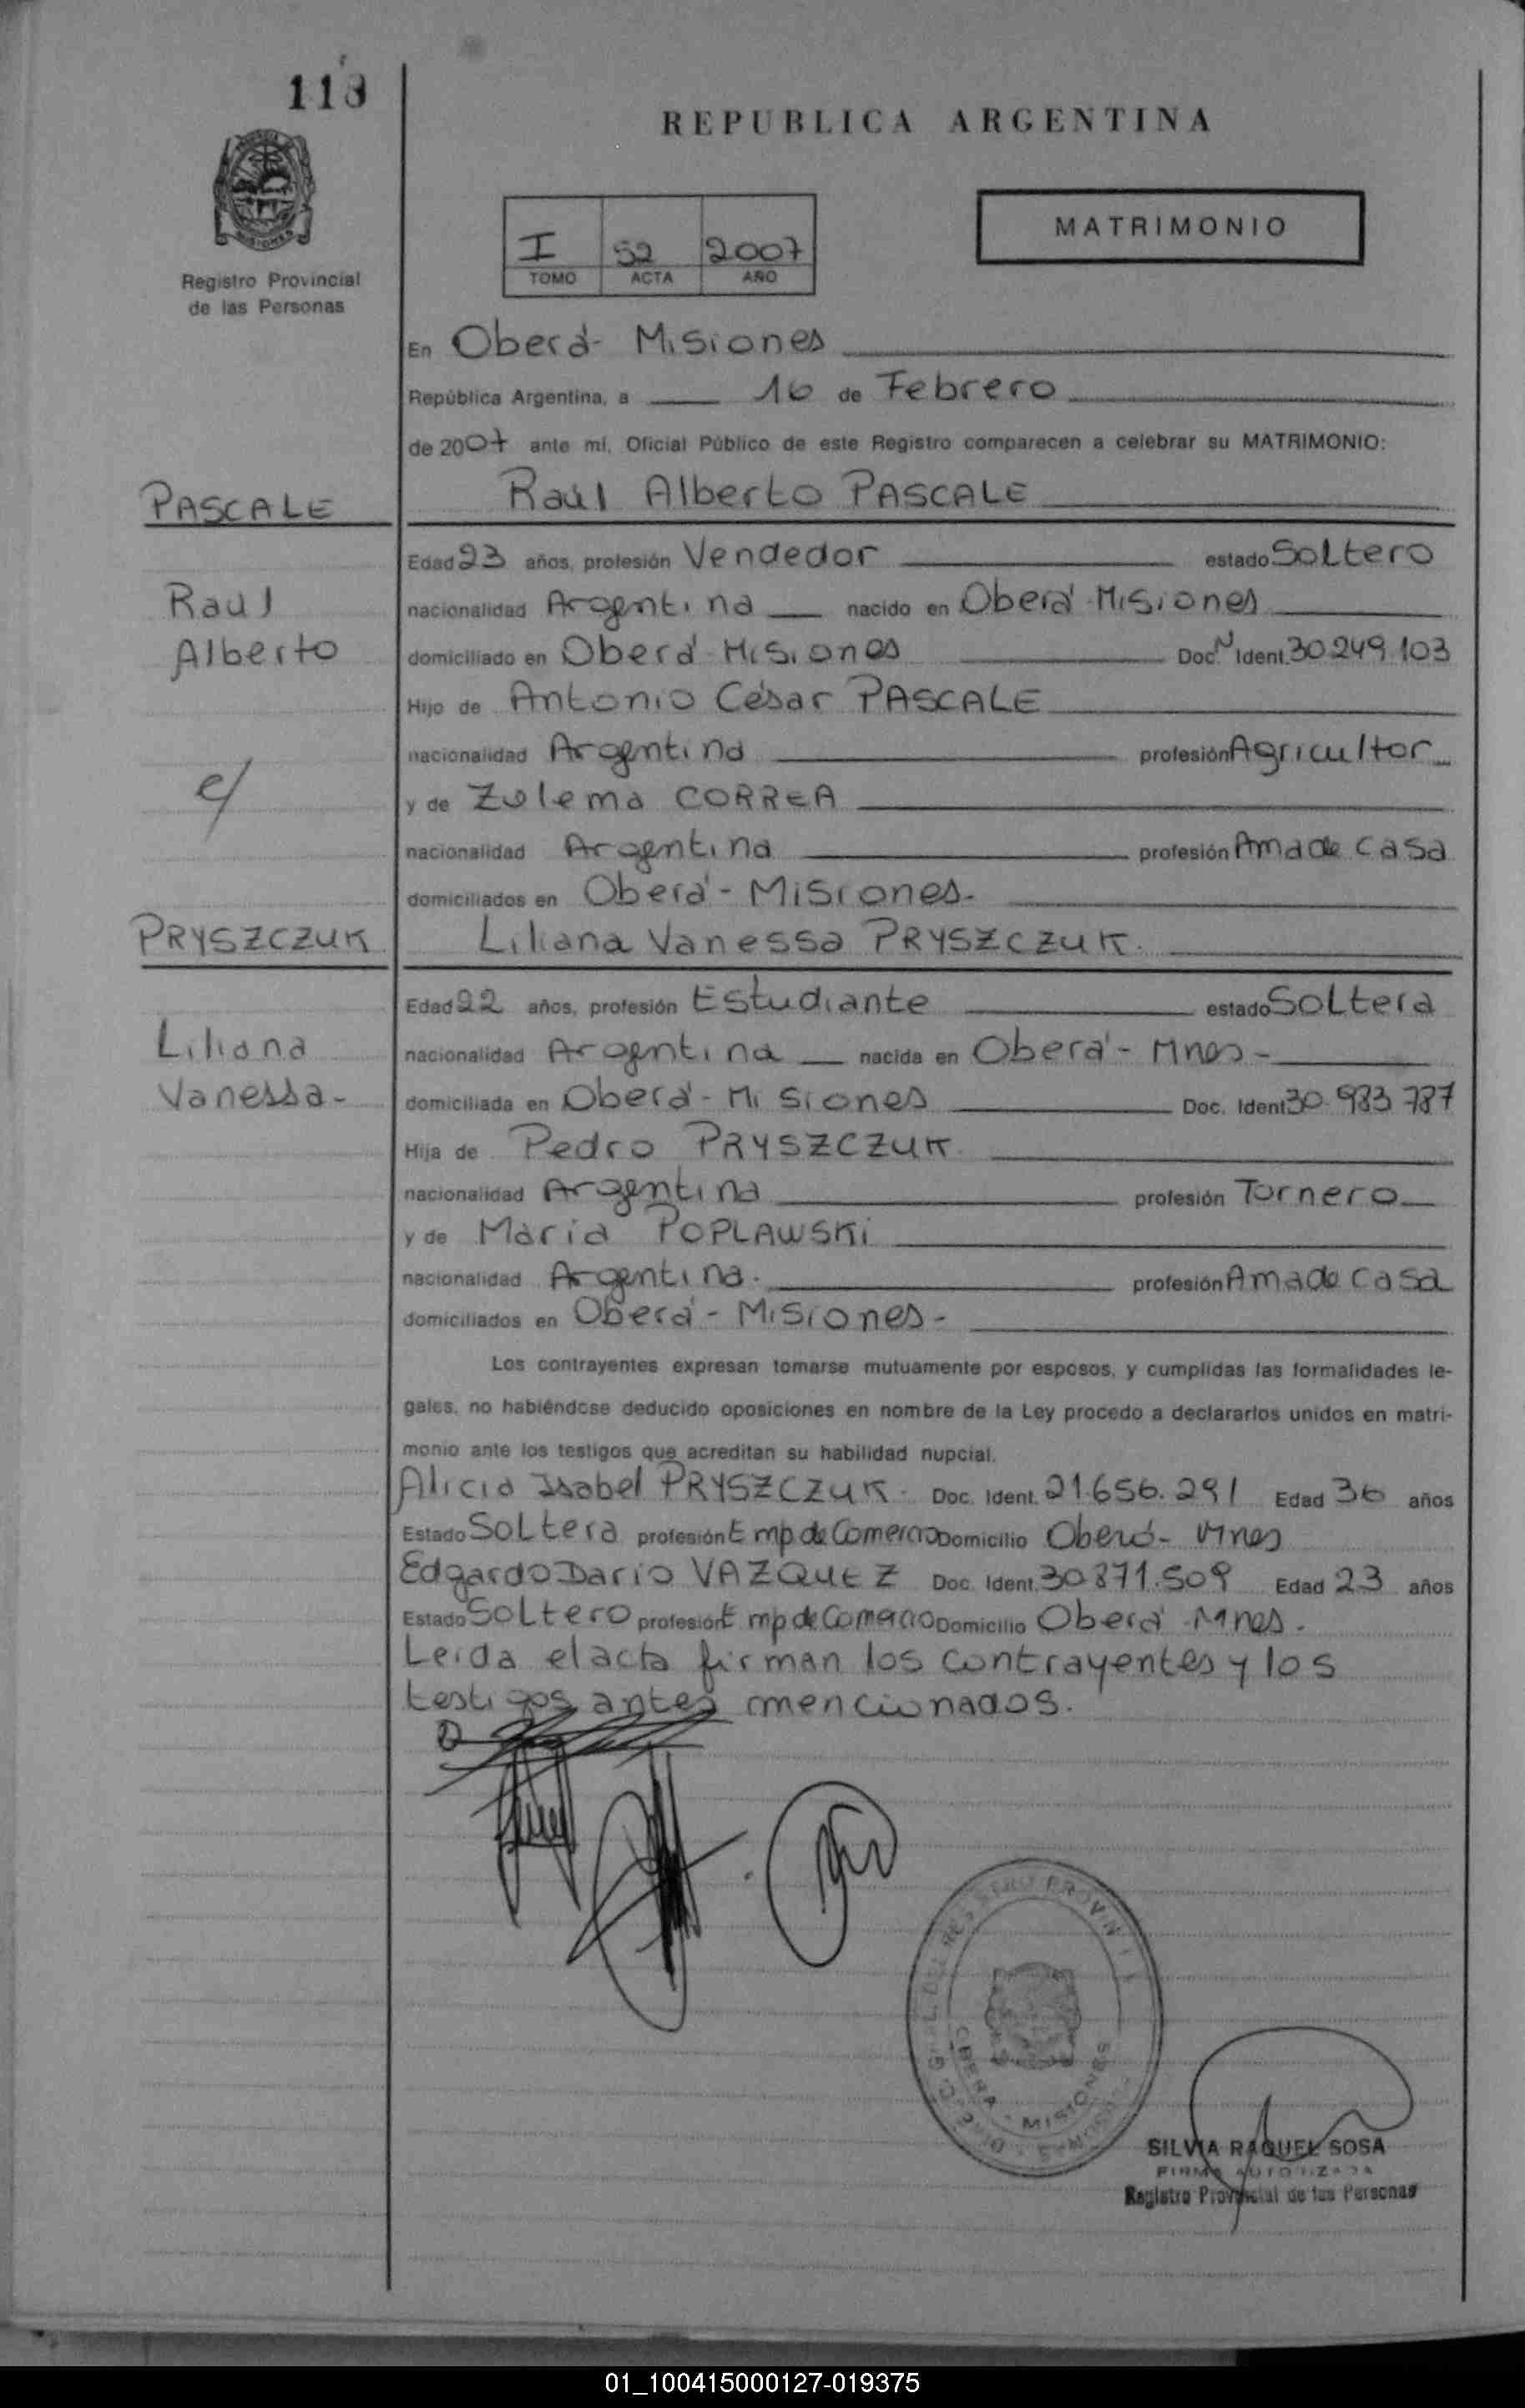 REPUBLICA ARGENTINA
MISIONES
Registro Provincial
de las Personas
I 52 2007
TOMO ACTA AÑO
MATRIMONIO
En Oberá - Misiones
República Argentina, a 16 de Febrero
de 2007 ante mí, Oficial Público de este Registro comparecen a celebrar su MATRIMONIO:
PASCALE
Raúl Alberto PASCALE
Edad 23 años, profesión Vendedor estado Soltero
Raúl
nacionalidad Argentina nacido en Oberá Misiones
Alberto
domiciliado en Oberá Misiones Doc. N Ident. 30.249.103
Hijo de Antonio César PASCALE
nacionalidad Argentina profesión Agricultor
c/
y de Zulema CORREA
nacionalidad Argentina profesión Ama de Casa
domiciliados en Oberá - Misiones.
PRYSZCZUK
Liliana Vanessa PRYSZCZUK.
Edad 22 años, profesión Estudiante estado Soltera
Liliana
nacionalidad Argentina nacida en Oberá - Mnes -
Vanessa -
domiciliada en Oberá - Misiones Doc. Ident 30.983.787
Hija de Pedro PRYSZCZUK.
nacionalidad Argentina profesión Tornero
y de María POPLAWSKi
nacionalidad Argentina. profesión Ama de Casa
domiciliados en Oberá - Misiones -
Los contrayentes expresan tomarse mutuamente por esposos, y cumplidas las formalidades le-
gales, no habiéndose deducido oposiciones en nombre de la Ley procedo a declararlos unidos en matri-
monio ante los testigos que acreditan su habilidad nupcial.
Alicia Isabel PRYSZCZUK. Doc. Ident. 21.656.291 Edad 36 años
Estado Soltera profesión Emp de Comercio Domicilio Oberá - Mnes
Edgardo Dario VAZQUEZ Doc. Ident. 30.871.509 Edad 23 años
Estado Soltero profesión Emp de Comercio Domicilio Oberá - Mnes.
Leida el acta firman los contrayentes y los
testigos antes mencionados.
OBERA - MISIONES
SILVIA RAQUEL SOSA
FIRMA AUTORIZADA
Registro Provincial de las Personas
01_100415000127-019375